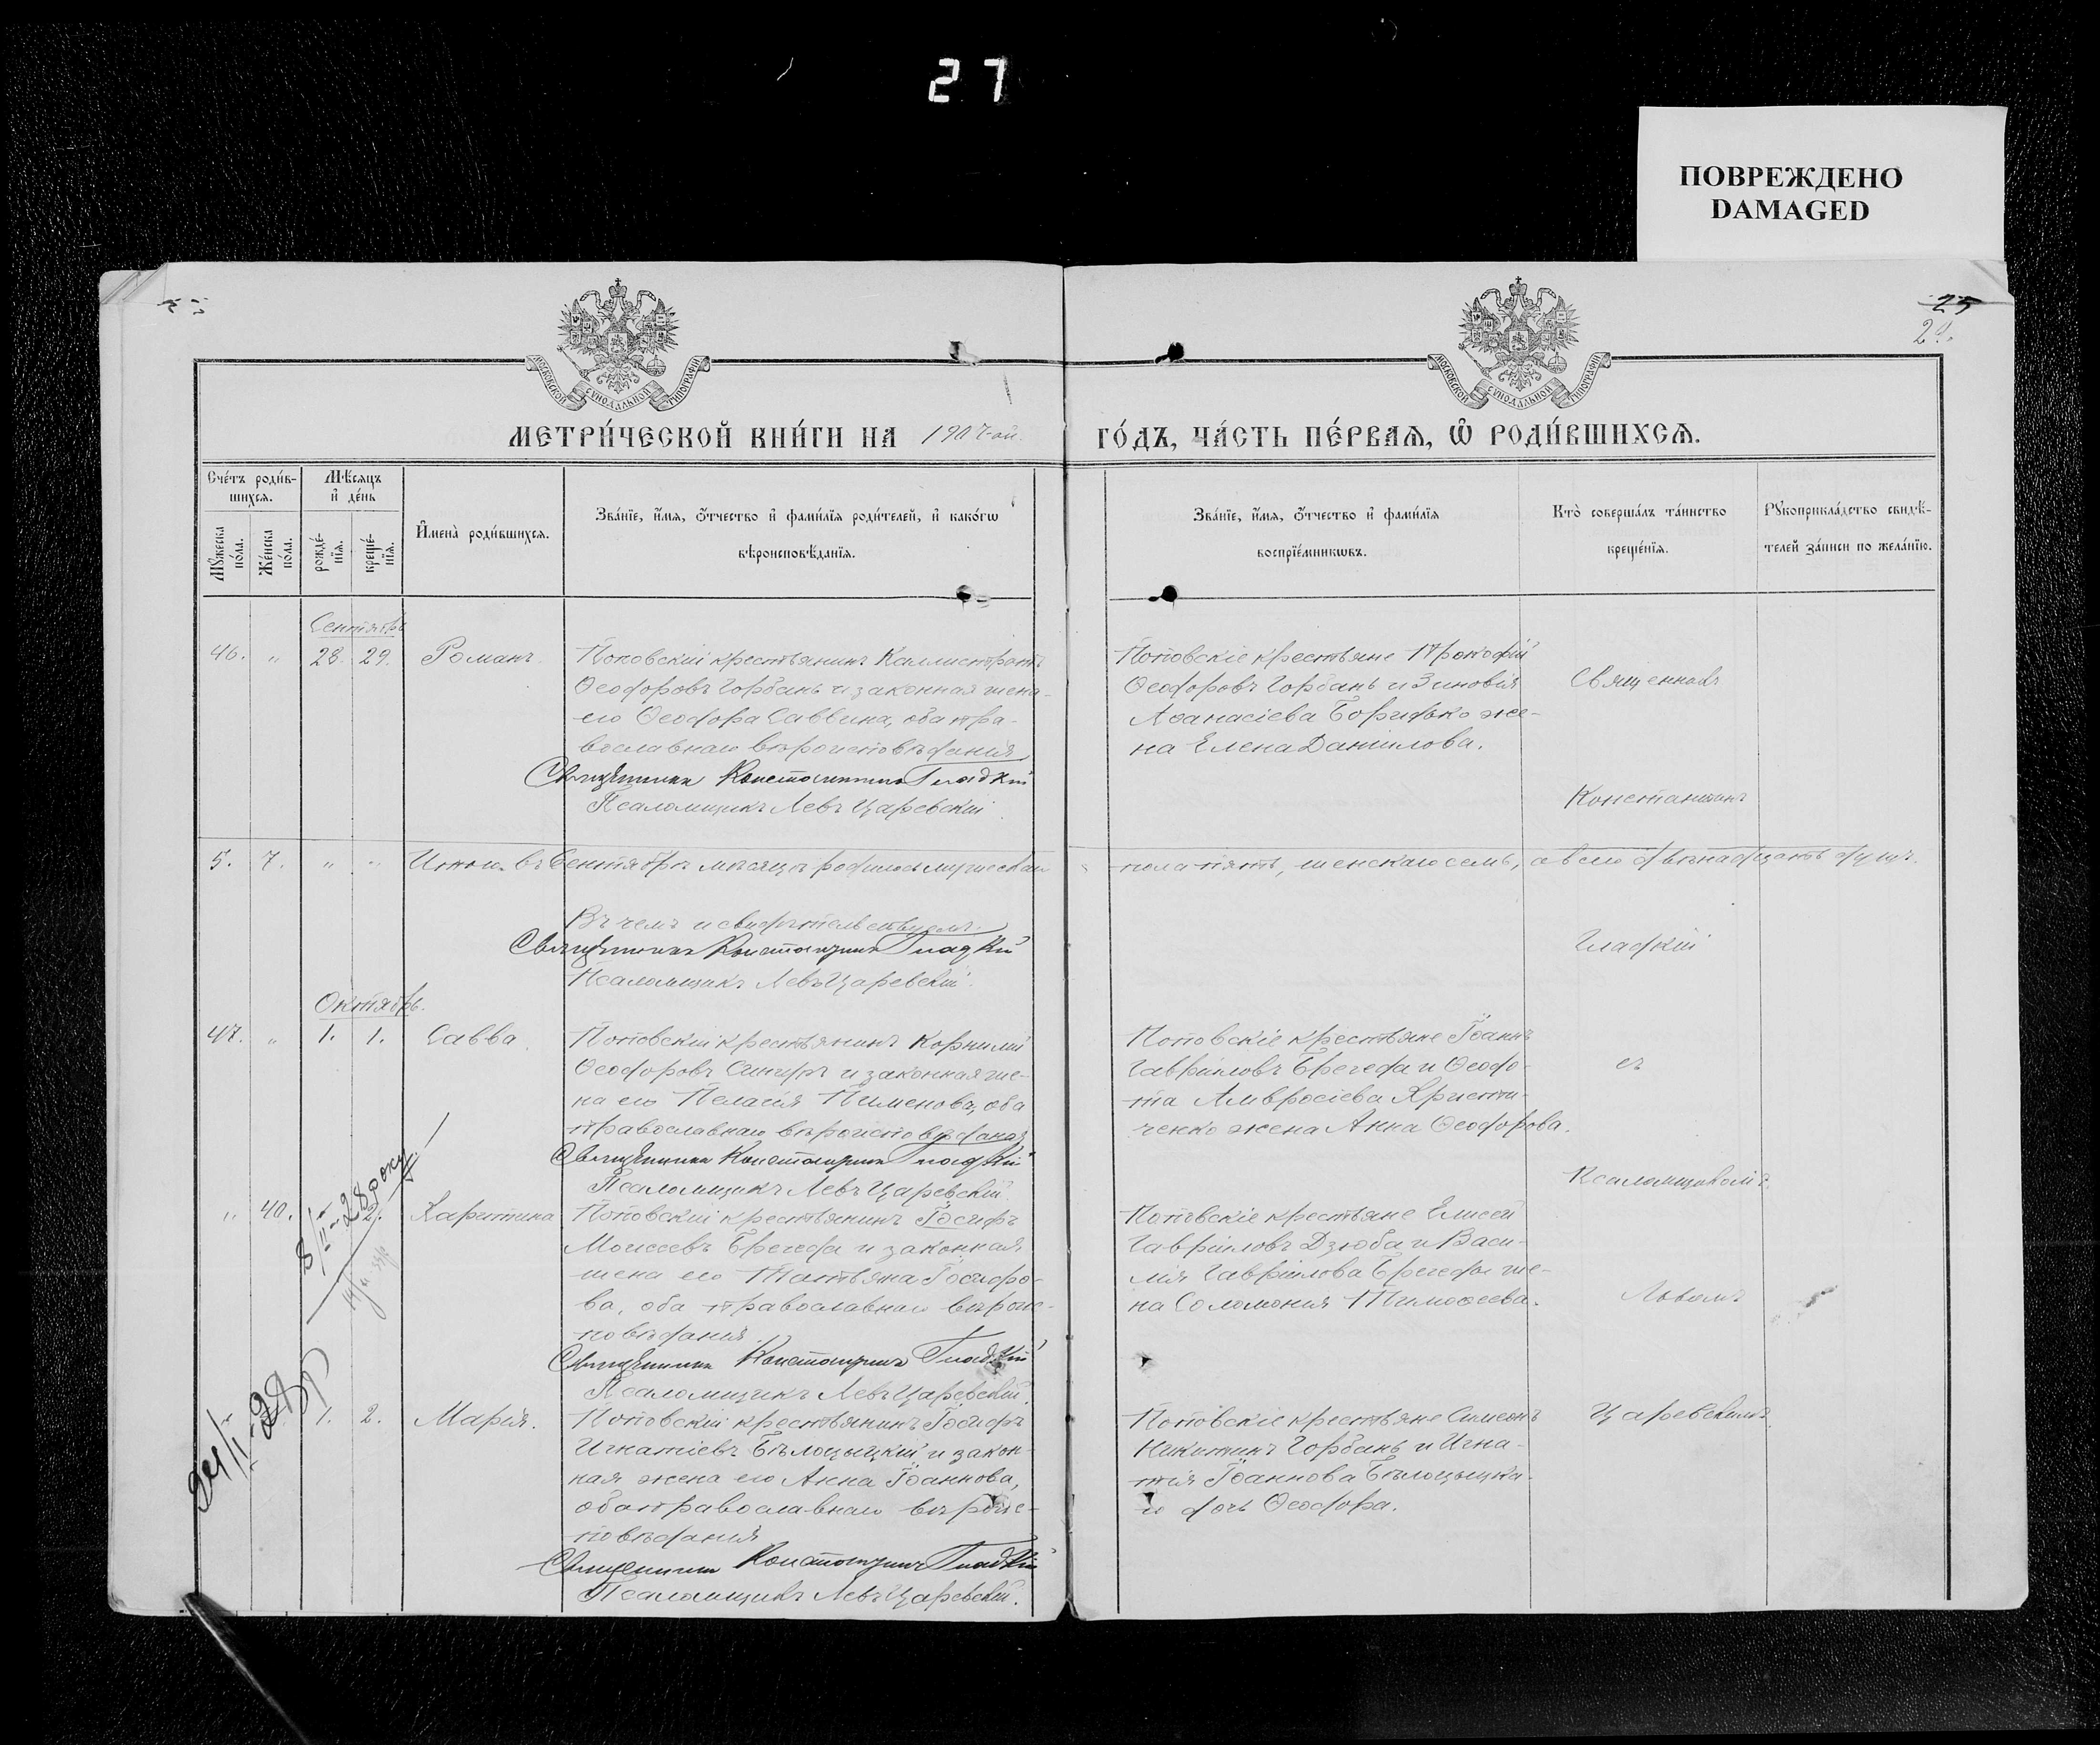 27
ПОВРЕЖДЕНО
DAMAGED
25
МОСКОВСКОЙ СѴНОДАЛЬНОЙ ТИПОГРАФІИ
МОСКОВСКОЙ СѴНОДАЛЬНОЙ ТИПОГРАФІИ
МЕТРИ́ЧЕСКОЙ КНИ́ГИ НА
ГО́ДЪ, ЧА́СТЬ ПЕ́РВАѦ, Ѿ РОДИ́ВШИХСѦ.
Сче́тъ роди́в-
шихсѧ.
Мѹжеска по́ла.
Же́нска по́ла.
Мѣ́сѧцъ
и де́нь
рожде́-
нїѧ.
креще́-
нїѧ.
Имена̀ роди́вшихсѧ.
Зва́нїе, и́мѧ, ѻ́тчество и фами́лїѧ роди́телей, и како́гѡ
вѣроисповѣ́данїѧ.
Зва́нїе, и́мѧ, ѻ́тчество и фами́лїѧ
воспрїе́мникѡвъ.
Кто̀ соверша́лъ та́инство
креще́нїѧ.
Рѹкоприкла́дство свидѣ́-
телей за́писи по жела́нїю.
Сентябрь
46. „ 28. 29. Романъ.
Поповскій крестьянинъ Каллистратъ
Ѳеодоровъ Горбань и законная жена
его Ѳеодора Саввина, оба пра-
вославнаго вѣроисповѣданія
Священникъ Константинъ Гладкій
Псаломщикъ Левъ Царевскій.
Поповскіе крестьяне Прокофій
Ѳеодоровъ Горбань и Зиновія
Аѳанасіева Боридько же-
на Елена Даніилова.
Священникъ
Константинъ
5. 7. „ „ Итого въ Сентябрѣ мѣсяцѣ родилось мужескаго пола пять, женскаго семь, а всего двѣнадцать душъ.
Въ чемъ и свидѣтельствуемъ.
Священникъ Константинъ Гладкій
Псаломщикъ Левъ Царевскій.
Гладкій
Октябрь.
47. „ 1. 1. Савва.
Поповскій крестьянинъ Корнилій
Ѳеодоровъ Синирь и законная же-
на его Пелагія Пименова, оба
православнаго вѣроисповѣданія
Священникъ Константинъ Гладкій
Псаломщикъ Левъ Царевскій.
Поповскіе крестьяне Іоаннъ
Гавріиловъ Брегеда и Ѳеодо-
та Амвросіева Христи-
ченко жена Анна Ѳеодорова.
съ
Псаломщикомъ
8/II-28 року
„ 40. 2. Харитина
Поповскій крестьянинъ Іосифъ
Моисеевъ Брегеда и законная
жена его Татьяна Іосифо-
ва, оба православнаго вѣроис-
повѣданія.
Священникъ Константинъ Гладкій
Псаломщикъ Левъ Царевскій.
Поповскіе крестьяне Елисей
Гавріиловъ Дзюба и Васи-
лія Гавріилова Брегеды же-
на Соломонія Тимоѳеева.
Львомъ
24/I-28 р
1. 2. Марія.
Поповскій крестьянинъ Іосифъ
Игнатіевъ Бѣлоцыцкій и закон-
ная жена его Анна Іоаннова,
оба православнаго вѣроис-
повѣданія
Священникъ Константинъ Гладкій
Псаломщикъ Левъ Царевскій.
Поповскіе крестьяне Симеонъ
Никитинъ Горбань и Игна-
тія Іоаннова Бѣлоцыцка-
го дочь Ѳеодора.
Царевскимъ